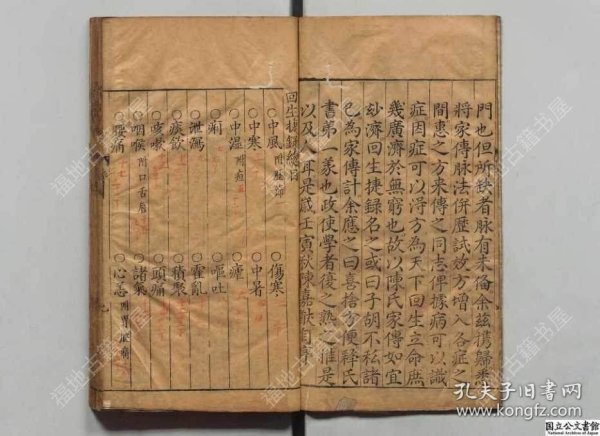 門也但所缺者脉有未備余茲携歸悉
將家傳脉法併歷試放方增入各症之
間惠之方来傳之同志俾據病可以識
症因症可以淂方為天下回生立命庶
幾廣濟於無窮也故以陳氏家傳如宜
玅濟回生捷録名之或曰子胡不私諸
已為家傳計余應之曰喜捨方便釋氏
書第一義也政使學者復之熟之推是
以及人耳是歲壬寅秋陳嘉猷
回生捷録總目
○中風 ○傷寒
○中寒 ○中暑
○中濕 ○瘧
○痢 ○嘔吐
○泄瀉 ○霍亂
○痰飲 ○積聚
○咳嗽 ○頭痛
○咽喉 附口舌 ○諸氣
○腰痛 ○心恙
福地古籍书屋
孔夫子旧书网
www.kongfz.com
国立公文書館
National Archives of Japan